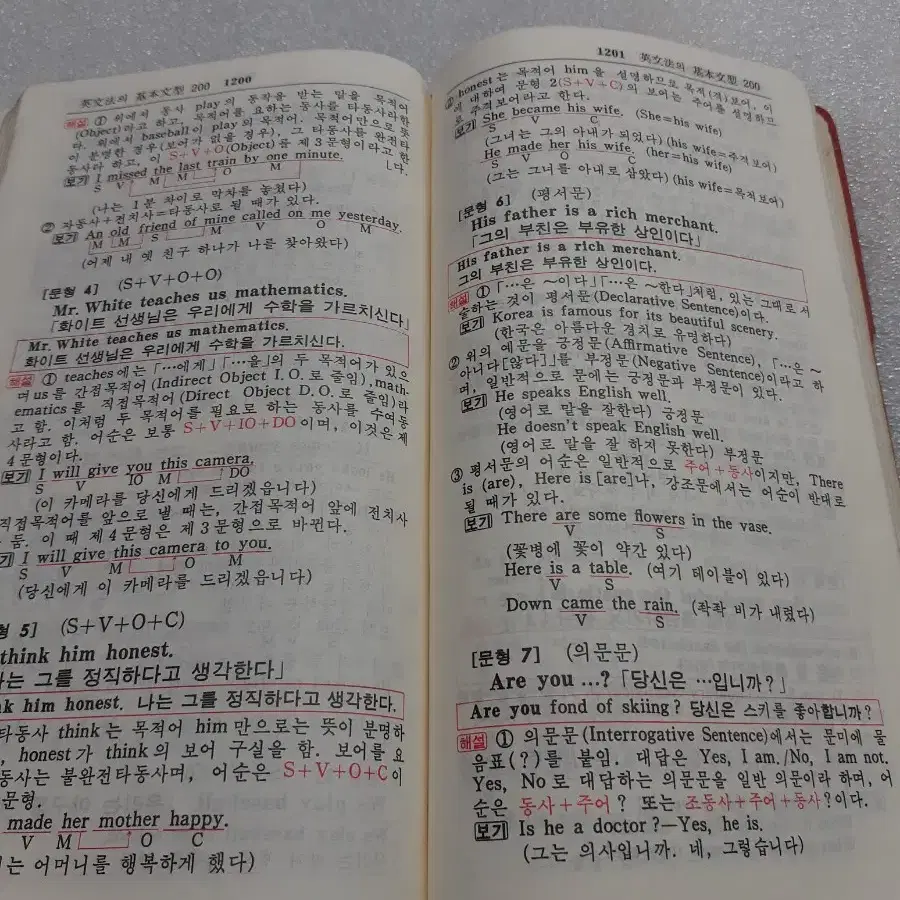 英文法의 基本文型 200 1200
해설 ① 위에서 동사 play의 동작을 받는 말을 목적어
(Object)라고 하고, 목적어를 요하는 동사를 타동사라 한
다. 위에서 baseball이 play의 목적어. 목적어만으로 뜻
이 분명한 경우(보어가 없을 경우), 그 타동사를 완전타
동사라 하고, 이 S+V+O(Object)를 제3문형이라고 한
다.
보기 I missed the last train by one minute.
S V M M O M
(나는 1분 차이로 막차를 놓쳤다)
② 자동사+전치사=타동사로 될 때가 있다.
보기 An old friend of mine called on me yesterday.
M M S M V O M
(어제 내 옛 친구 하나가 나를 찾아왔다)
[문형 4] (S+V+O+O)
Mr. White teaches us mathematics.
「화이트 선생님은 우리에게 수학을 가르치신다」
Mr. White teaches us mathematics.
화이트 선생님은 우리에게 수학을 가르치신다.
해설 ① teaches에는 「…에게」「…을」의 두 목적어가 있으
며 us를 간접목적어(Indirect Object I.O.로 줄임), math-
ematics를 직접목적어(Direct Object D.O.로 줄임)라
고 함. 이처럼 두 목적어를 필요로 하는 동사를 수여동
사라고 함. 어순은 보통 S+V+IO+DO이며, 이것은 제
4문형이다.
보기 I will give you this camera.
S V IO M DO
(이 카메라를 당신에게 드리겠읍니다)
직접목적어를 앞으로 낼 때는, 간접목적어 앞에 전치사
둠. 이 때 제4문형은 제3문형으로 바뀐다.
기 I will give this camera to you.
S V M O M
(당신에게 이 카메라를 드리겠읍니다)
형 5] (S+V+O+C)
think him honest.
나는 그를 정직하다고 생각한다」
nk him honest. 나는 그를 정직하다고 생각한다.
타동사 think는 목적어 him만으로는 뜻이 분명하
, honest가 think의 보어 구실을 함. 보어를 요
동사는 불완전타동사며, 어순은 S+V+O+C이
문형.
made her mother happy.
V M O C
는 어머니를 행복하게 했다)
1201 英文法의 基本文型 200
② honest는 목적어 him을 설명하므로 목적(격)보어, 이
에 대하여 문형 2(S+V+C)의 보어는 주어를 설명하므
로 주격보어라고 한다.
보기 She became his wife. (She=his wife)
S V C
(그녀는 그의 아내가 되었다) (his wife=주격보어)
He made her his wife. (her=his wife)
S V O C
(그는 그녀를 아내로 삼았다) (his wife=목적보어)
[문형 6] (평서문)
His father is a rich merchant.
「그의 부친은 부유한 상인이다」
His father is a rich merchant.
그의 부친은 부유한 상인이다.
해설 ① 「…은 ~이다」「…은 ~한다」처럼, 있는 그대로 서
술하는 것이 평서문(Declarative Sentence)이다.
보기 Korea is famous for its beautiful scenery.
(한국은 아름다운 경치로 유명하다)
② 위의 예문을 긍정문(Affirmative Sentence), 「…은 ~
아니다[않다]」를 부정문(Negative Sentence)이라고 하
며, 일반적으로 문에는 긍정문과 부정문이 있다.
보기 He speaks English well.
(영어로 말을 잘한다) 긍정문
He doesn't speak English well.
(영어로 말을 잘 하지 못한다) 부정문
③ 평서문의 어순은 일반적으로 주어+동사이지만, There
is (are), Here is [are]나, 강조문에서는 어순이 반대로
될 때가 있다.
보기 There are some flowers in the vase.
V S
(꽃병에 꽃이 약간 있다)
Here is a table. (여기 테이블이 있다)
V S
Down came the rain. (좍좍 비가 내렸다)
V S
[문형 7] (의문문)
Are you …? 「당신은 …입니까?」
Are you fond of skiing? 당신은 스키를 좋아합니까?
해설 ① 의문문(Interrogative Sentence)에서는 문미에 물
음표(?)를 붙임. 대답은 Yes, I am./No, I am not.
Yes, No로 대답하는 의문문을 일반 의문이라 하며, 어
순은 동사+주어? 또는 조동사+주어+동사?이다.
보기 Is he a doctor?—Yes, he is.
(그는 의사입니까. 네, 그렇습니다)